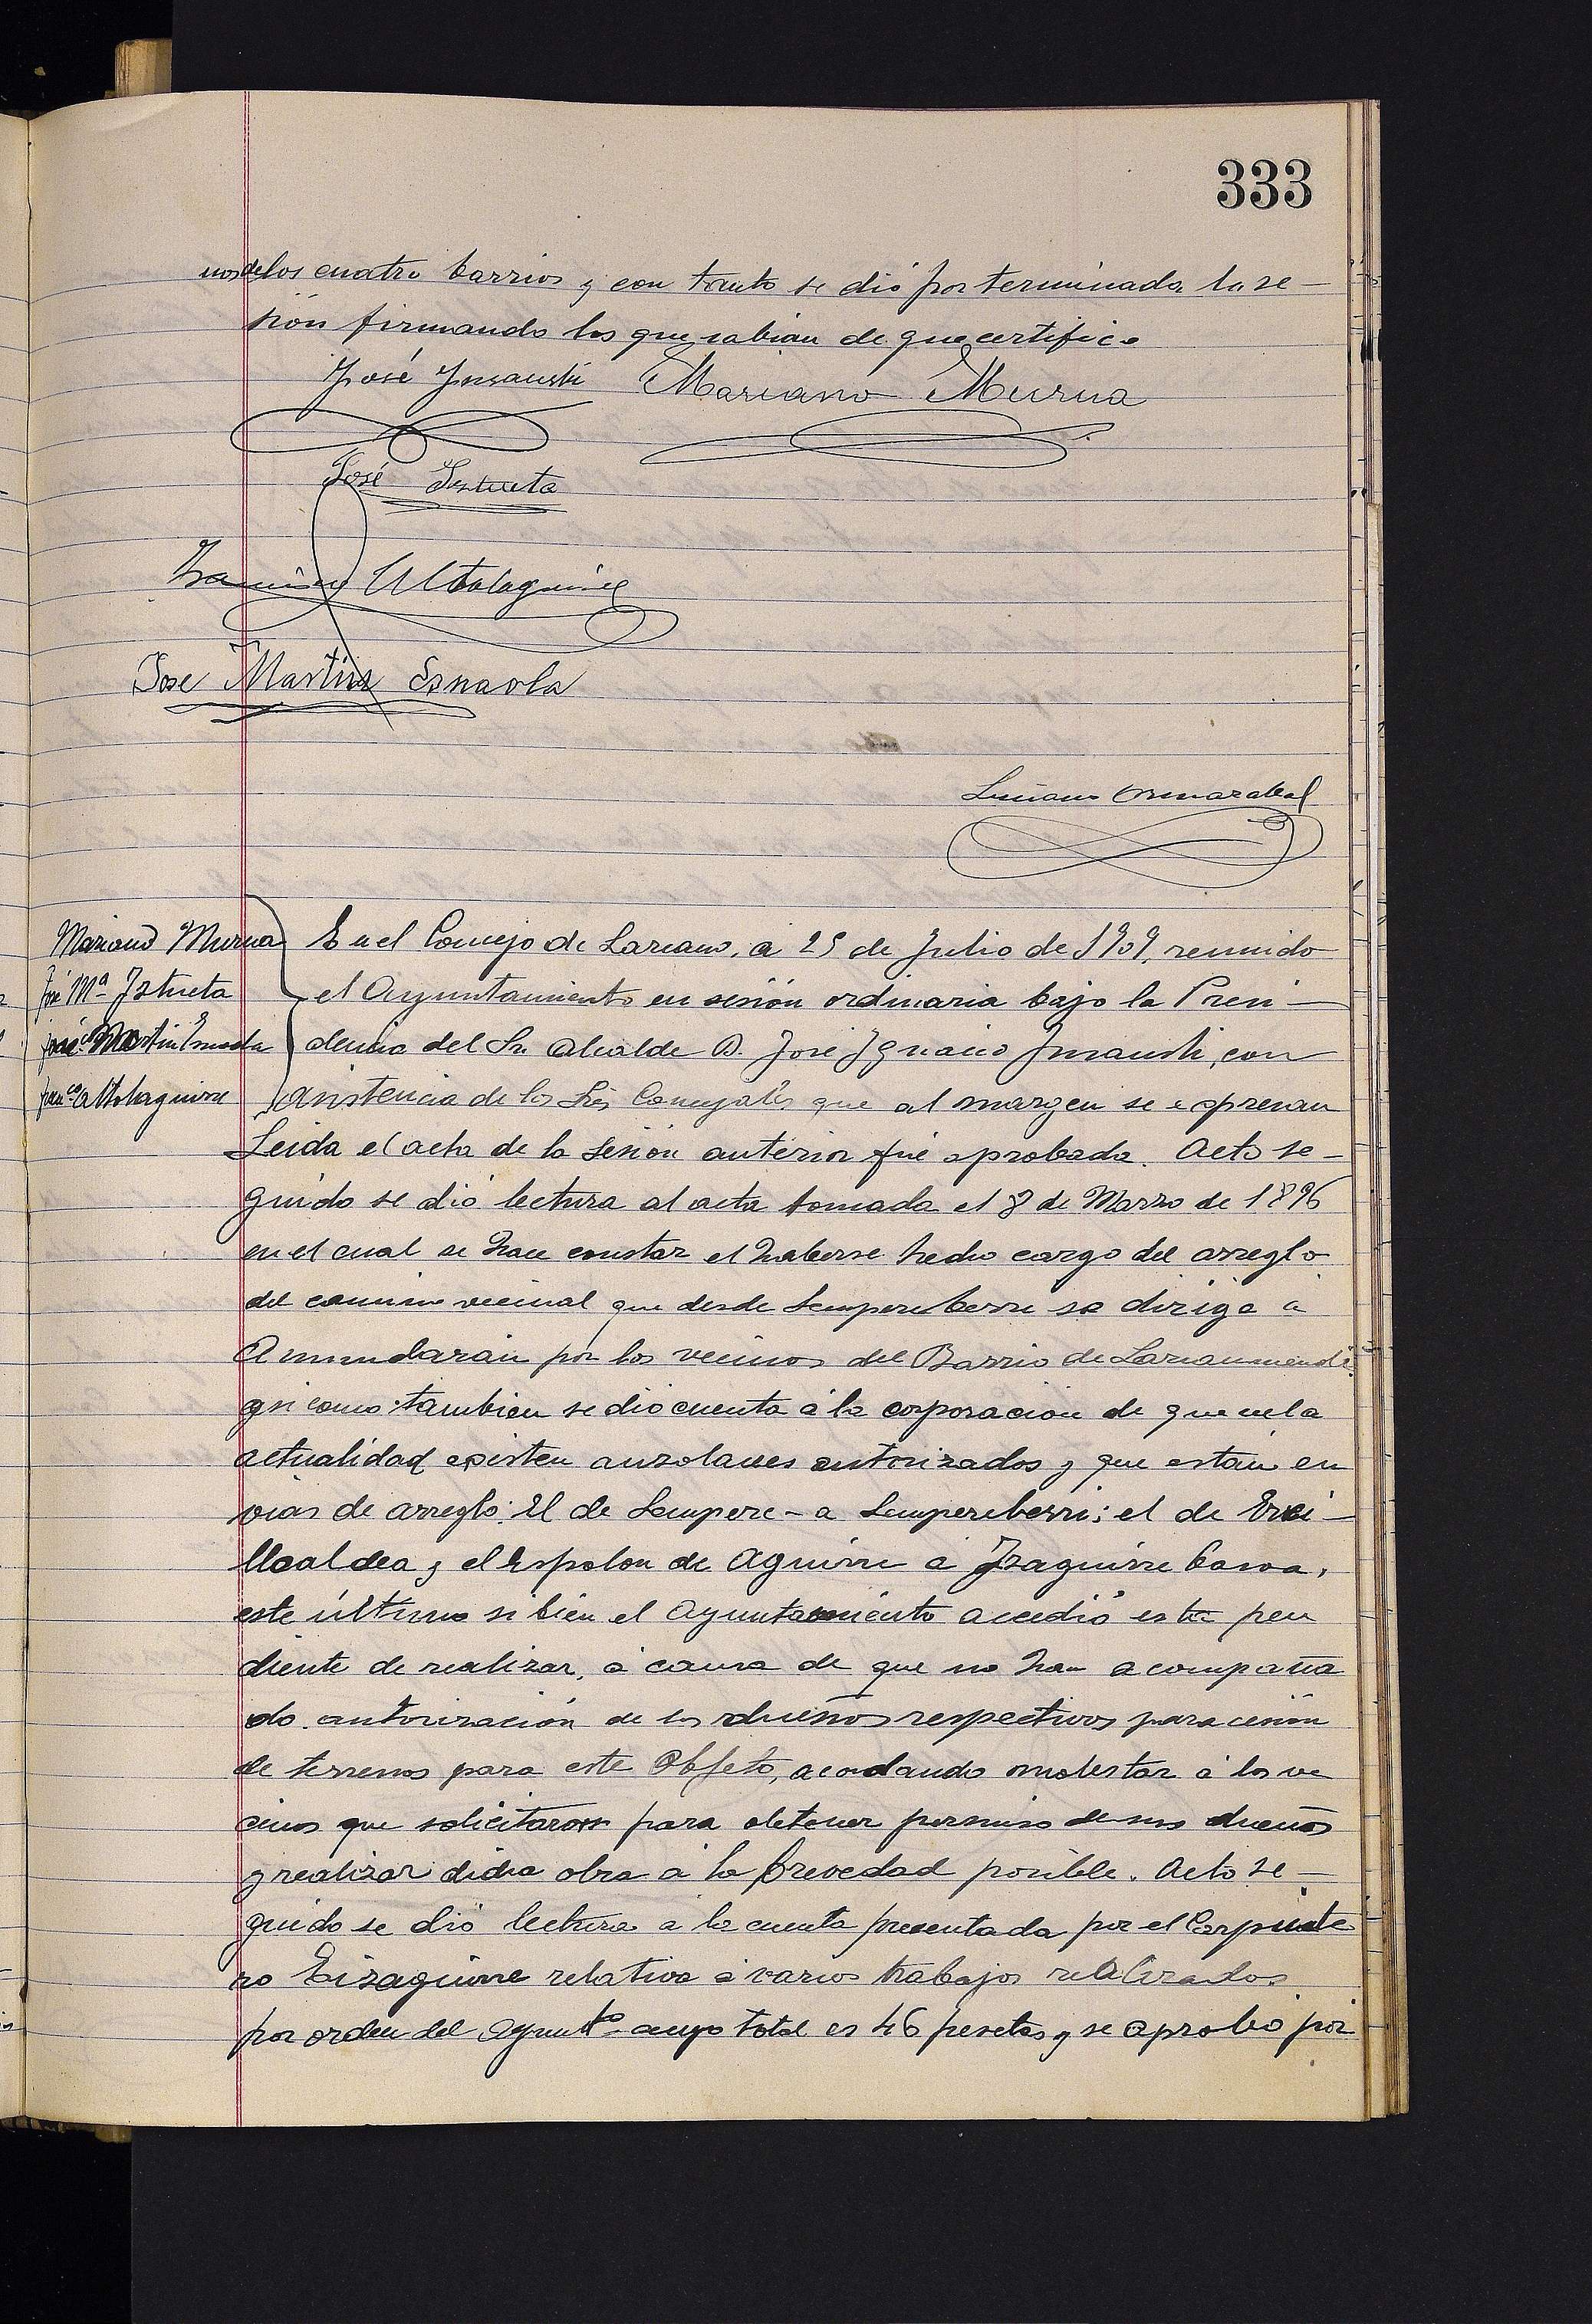 333
nos de los cuatro barrios y con tanto se dió por terminada la se-
sión firmando los que sabian de que certifico
José Insausti Mariano Murua
José Istueta
Altolaguirre
Jose Martin Esnaola
Luciano Ormazabal
Mariano Murua
José Mª Istueta
José Martin Esnaola
Fran.co Altolaguirre
En el Concejo de Lazcano, a 25 de Julio de 1909, reunido
el Ayuntamiento en sesión ordinaria bajo la Presi-
dencia del Sr. Alcalde D. José Ignacio Insausti, con
asistencia de los Sres Concejales que al margen se expresan
Leida el acta de la sesión anterior fué aprobada. Acto se-
guido se dió lectura al acta tomada el 8 de Marzo de 1896
en el cual se hace constar el haberse hecho cargo del arreglo
del camino vecinal que desde Sempereberri se dirige a
Amundarain por los vecinos del Barrio de Lazcanomendi
asi como tambien se dio cuenta á la corporacion de que en la
actualidad existen auzolanes autorizados y que están en
vias de arreglo: El de Sempere - a Sempereberri; el de Erci-
llaaldea y el Espolon de Aguirre a Izaguirre
este último si bien el Ayuntamiento accedió está pen
diente de realizar, á causa de que no han acompaña
do autorización de los dueños respectivos para cesión
de terrenos para este Objeto, acordando molestar á los ve
cinos que solicitaron para obtener permiso de sus dueños
y realizar dicha obra á la brevedad posible. Acto se-
guido se dió lectura a la cuenta presentada por el Carpinte
ro Eizaguirre relativa á varios trabajos realizados
por orden del Ayuntto cuyo total es 46 pesetas y se aprobó por